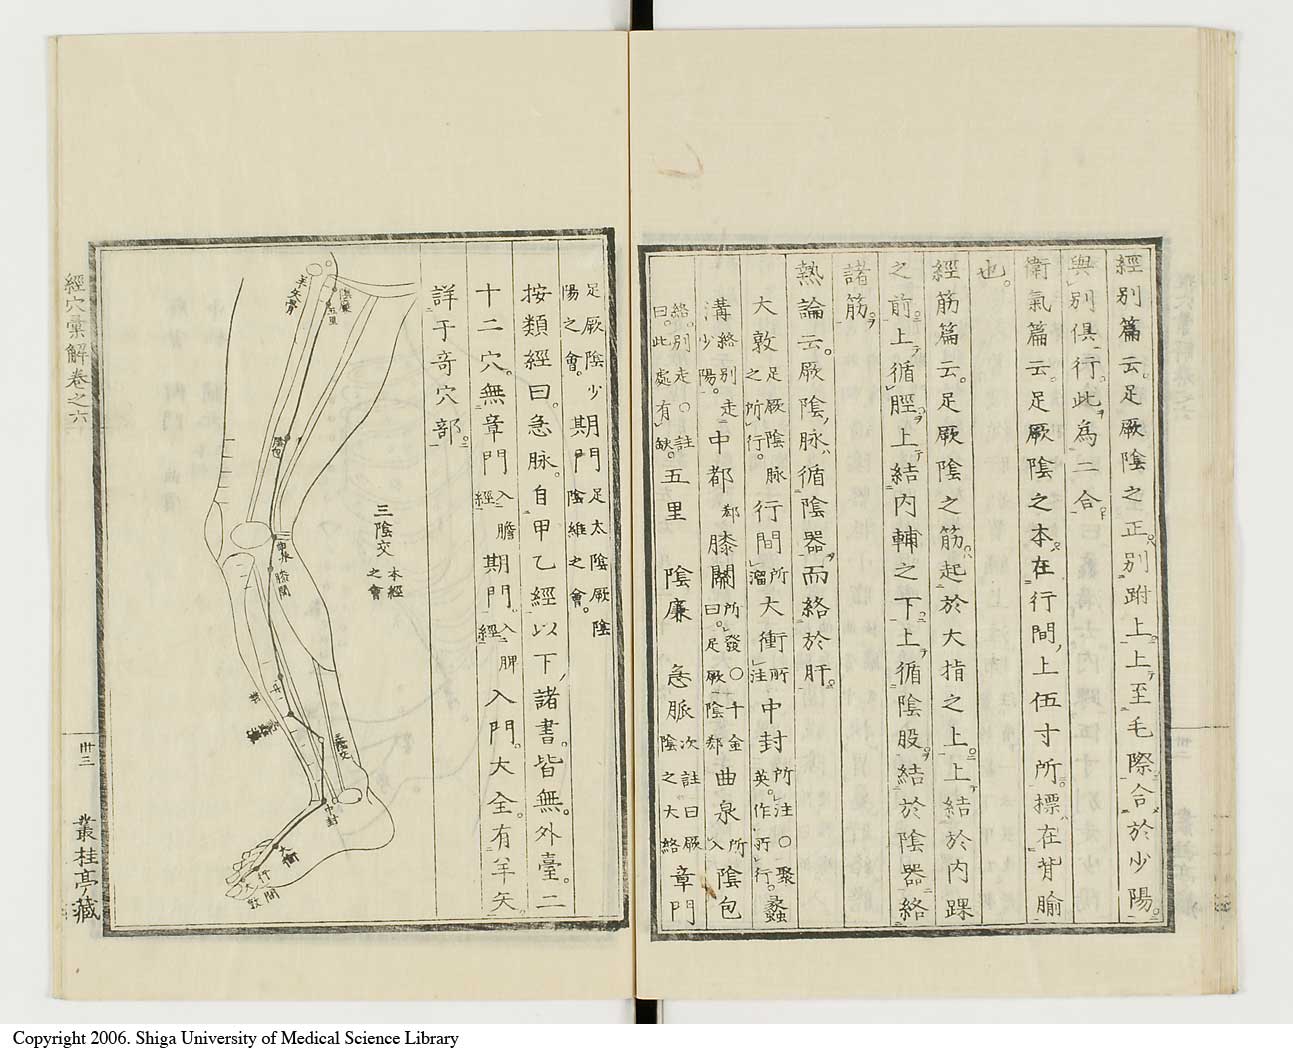 經別篇云。足厥陰之正。別跗上。上至毛際。合於少陽。
與別俱行。此為二合
衛氣篇云。足厥陰之本。在行間。上伍寸所。標在背腧
也。
經筋篇云。足厥陰之筋。起於大指之上。上結於内踝
之前。上循脛。上結内輔之下。上循陰股。結於陰器。絡
諸筋。
熱論云。厥陰脉循陰器。而絡於肝。
大敦 足厥陰脉之所行。 行間 所溜 大衝 所注 中封 所注〇聚英。作所行。 蠡
溝 絡別走少陽。 中都 郄 膝關 所發〇千金曰。足厥陰郄 曲泉 所入 陰包
絡。別走〇註曰。此處有缺。 五里 陰廉 急脈 次註曰厥陰之大絡 章門
足厥陰少陽之會。 期門 足太陰厥陰陰維之會。
按類經曰。急脉。自甲乙經以下。諸書。皆無。外臺。二
十二穴。無章門 入膽經 期門 入脾經 入門。大全。有羊矢
詳于奇穴部。
三陰交 本經之會
羊矢骨
五里
陰包
曲泉
膝關
中封
大衝
行間
大敦
經穴彙解卷之六
卅三
叢桂亭藏
Copyright 2006. Shiga University of Medical Science Library